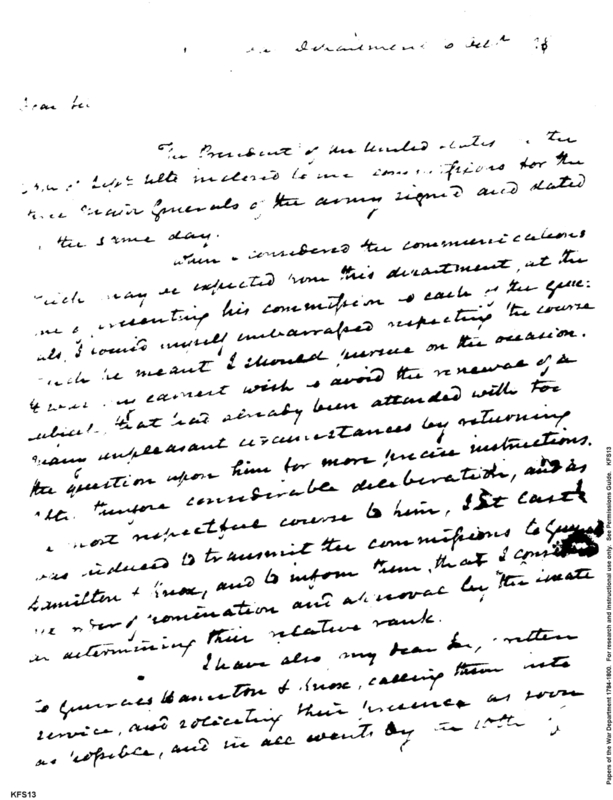 Department
Dear Sir
The President of the United States in the
Sepr. Ulto inclosed to me commissions for the
three Major Generals of the army signed and dated
the same day.
When I considered the communications
which may be expected from this department, at the
presenting his commission to each of the Gene-
als, I found myself embarrassed respecting the course
which he meant I should pursue on the occasion.
It was my earnest wish to avoid the renewal of a
subject that had already been attended with too
many unpleasant circumstances by returning
the question upon him for more precise instructions.
considerable deliberation, and as
most respectful course to him, I at last
was induced to transmit the commissions to Generals
Hamilton & Knox, and to inform them, that I considered
the order of nomination and approval by the Senate
as determining their relative rank.
I have also, my dear Sir, written
to Generals Hamilton & Knox, calling them into
service, and soliciting their presence as soon
as possible, and in all events by the 10th
KFS13
Papers of the War Department 1784-1800. For research and instructional use only. See Permissions Guide. KFS13